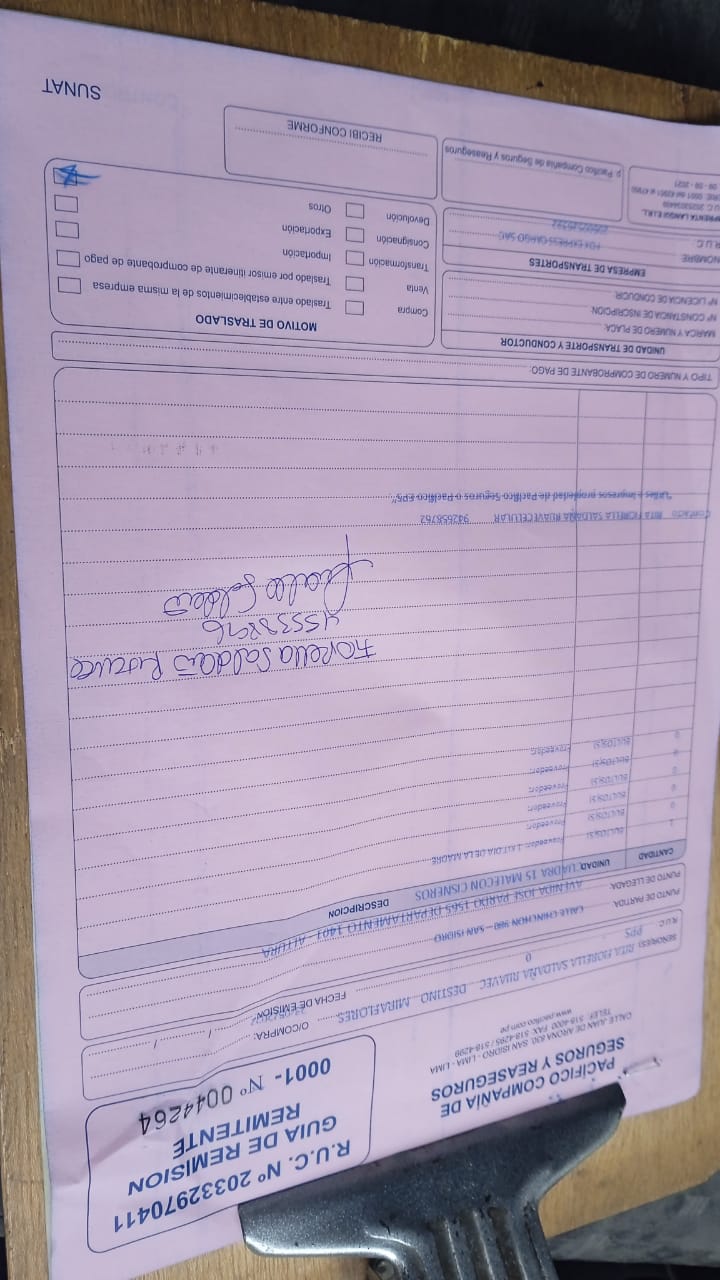 PACÍFICO COMPAÑÍA DE
SEGUROS Y REASEGUROS
CALLE JUAN DE ARONA 830 SAN ISIDRO - LIMA - LIMA
TELEF. 518-4000 FAX 518-4295 / 518-4299
www.pacifico.com.pe
R.U.C. Nº 20332970411
GUIA DE REMISION
REMITENTE
0001- Nº 0044264
SEÑOR(ES) RITA FIORELLA SALDAÑA RUAVEC . DESTINO MIRAFLORES
O/COMPRA:
R.U.C. PPS 0
FECHA DE EMISION
PUNTO DE PARTIDA CALLE CHINCHON 980 - SAN ISIDRO
PUNTO DE LLEGADA AVENIDA JOSE PARDO 1565 DEPARTAMENTO 1401 - ALTURA
CUADRA 15 MALECON CISNEROS
CANTIDAD UNIDAD DESCRIPCION
1 BULTO(S) Proveedor: 1 KIT DIA DE LA MADRE
0 BULTO(S) Proveedor:
0 BULTO(S) Proveedor:
0 BULTO(S) Proveedor:
0 BULTO(S) Proveedor:
0 BULTO(S) Proveedor:
Fiorella Saldaña
45538896
Contacto RITA FIORELLA SALDAÑA RUAVECELULAR 942658762
"Utiles e impresos propiedad de Pacífico Seguros o Pacífico EPS"
TIPO Y NUMERO DE COMPROBANTE DE PAGO:
UNIDAD DE TRANSPORTE Y CONDUCTOR
MARCA Y NUMERO DE PLACA:
Nº CONSTANCIA DE INSCRIPCION
Nº LICENCIA DE CONDUCIR:
EMPRESA DE TRANSPORTES
NOMBRE: FOX EXPRESS CARGO SAC
R.U.C.
MOTIVO DE TRASLADO
Compra
Venta
Transformación
Consignación
Devolución
Traslado entre establecimientos de la misma empresa
Traslado por emisor itinerante de comprobante de pago
Importación
Exportación
Otros
p. Pacífico Compañía de Seguros y Reaseguros
RECIBI CONFORME
SUNAT